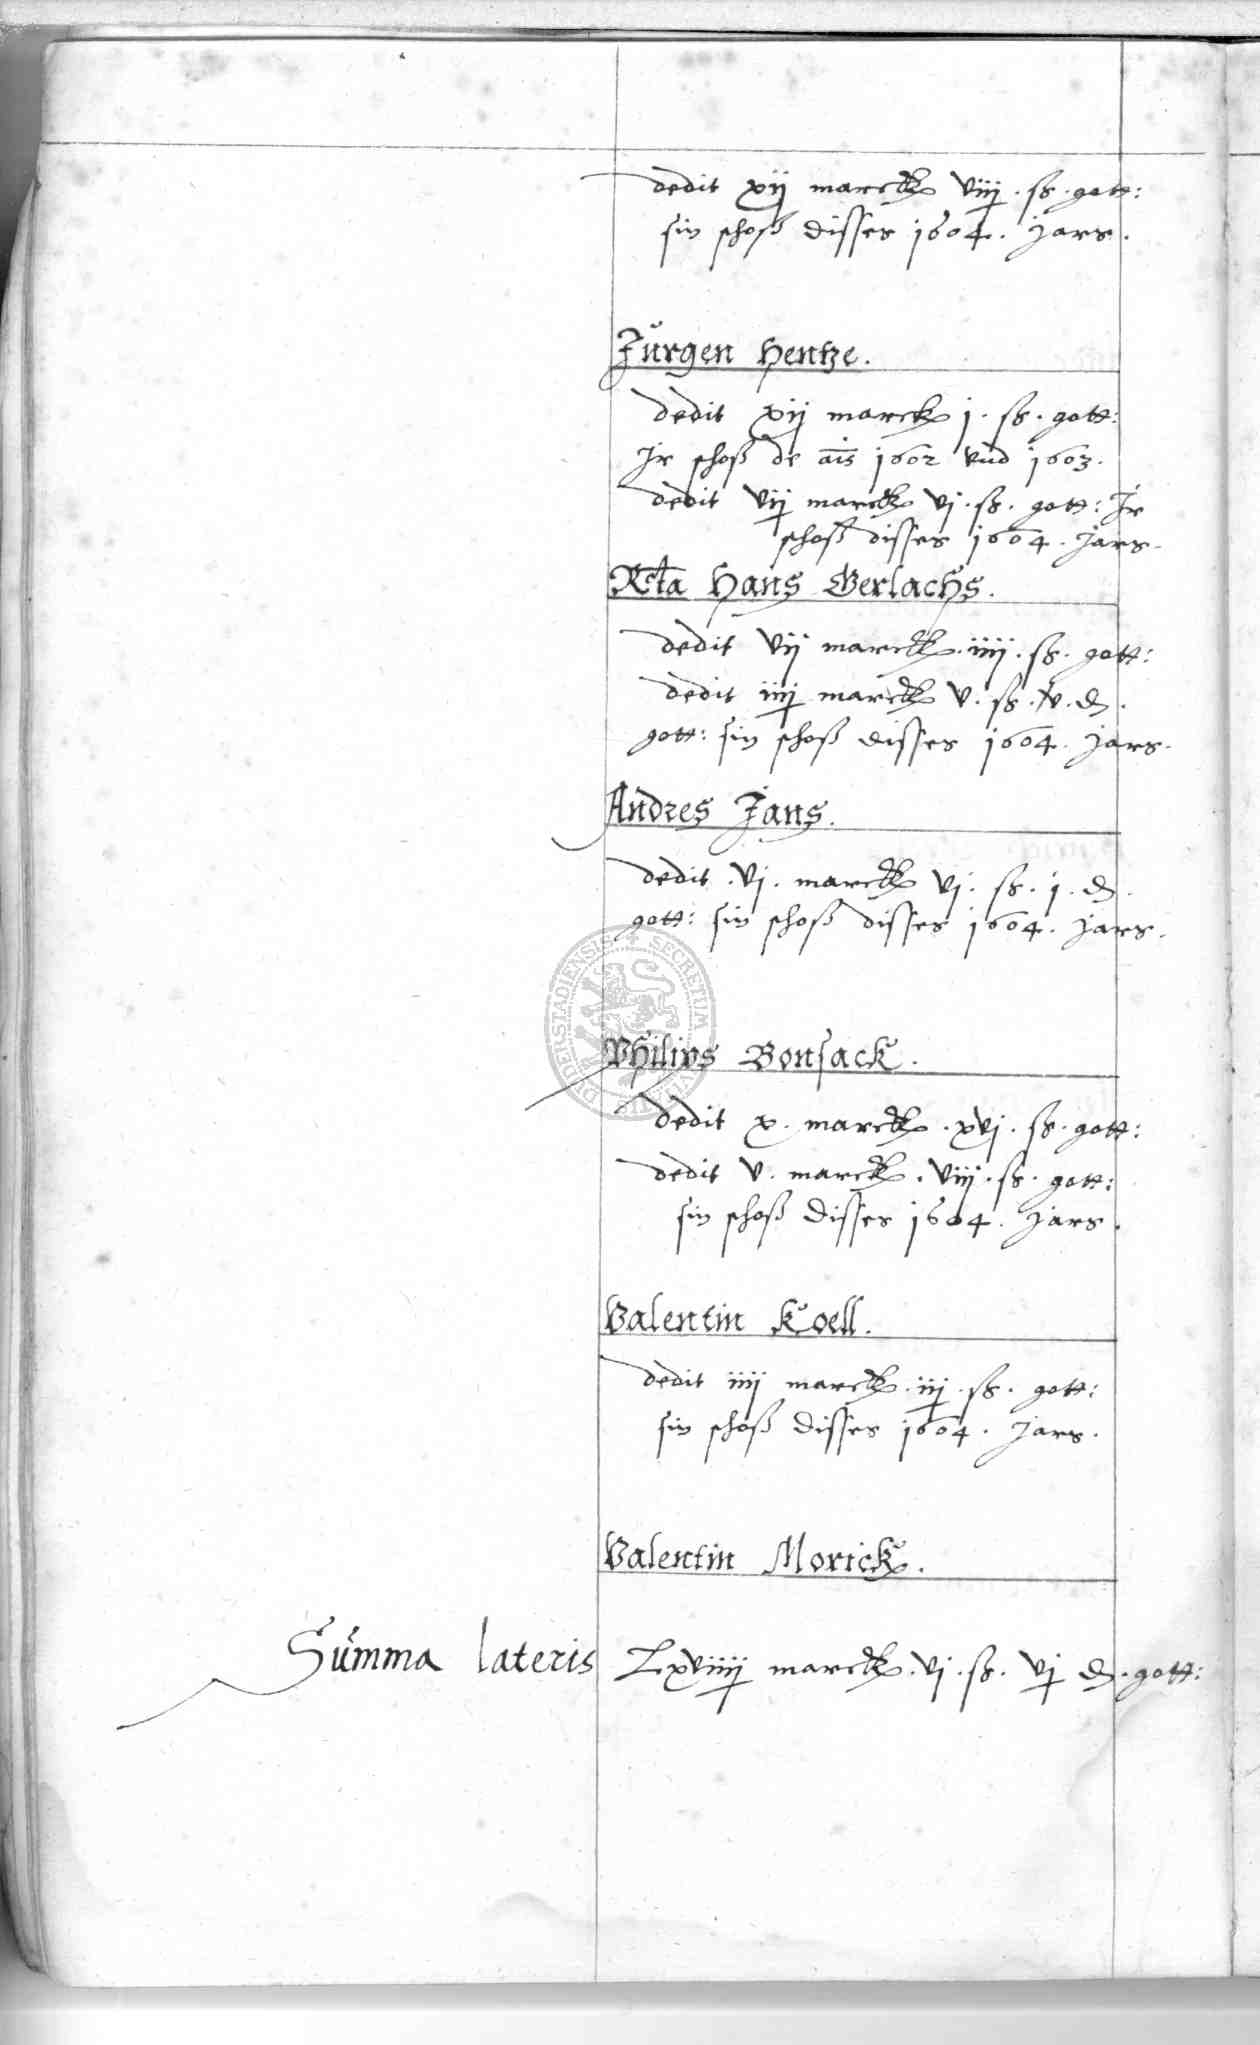 dedit xij marck viij . ß . gott:
sin schoß disses 1604 . Jars .
Jürgen Hentze .
dedit xij marck j . ß . gott:
Ir schoß de ais 1602 vnd 1603 .
dedit vij marck vj . ß . gott: Ir
schoß disses 1604 . Jars .
Rcta Hans Gerlachs .
dedit vij marck . iiij . ß . gott:
dedit iiij marck v . ß . v . d .
gott: sin schoß disses 1604 . Jars .
Andres Jans .
dedit . vj . marck vj . ß . j . d .
gott: sin schoß disses 1604 . Jars .
SECRETUM DUDERSTADIENSIS
Philips Bonsack .
dedit x . marck . xvj . ß . gott:
dedit v . marck . viij . ß . gott:
sin schoß disses 1604 . Jars .
Valentin Koell .
dedit iiij marck . iij . ß . gott:
sin schoß disses 1604 . Jars .
Valentin Morick .
Summa lateris Lxviiij marck . vj . ß . vj d . gott: